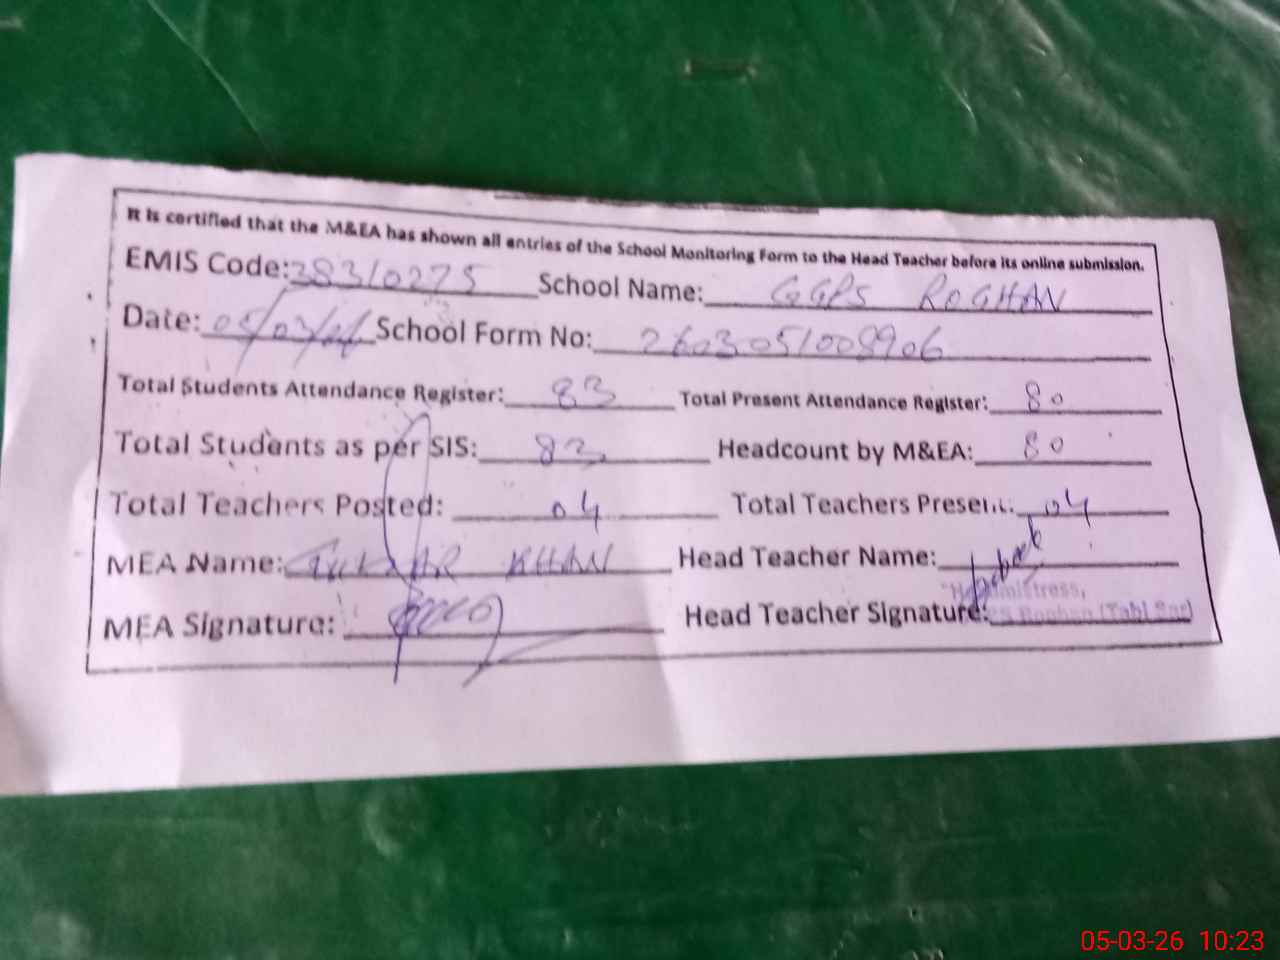 It is certified that the M&EA has shown all entries of the School Monitoring Form to the Head Teacher before its online submission.
EMIS Code: 38310275 School Name: GGPS ROGHAN
Date: 05/03/26 School Form No: 2603051008906
Total Students Attendance Register: 83 Total Present Attendance Register: 80
Total Students as per SIS: 83 Headcount by M&EA: 80
Total Teachers Posted: 04 Total Teachers Present: 04
MEA Name: KHAN Head Teacher Name:
MEA Signature: Head Teacher Signature:
05-03-26 10:23